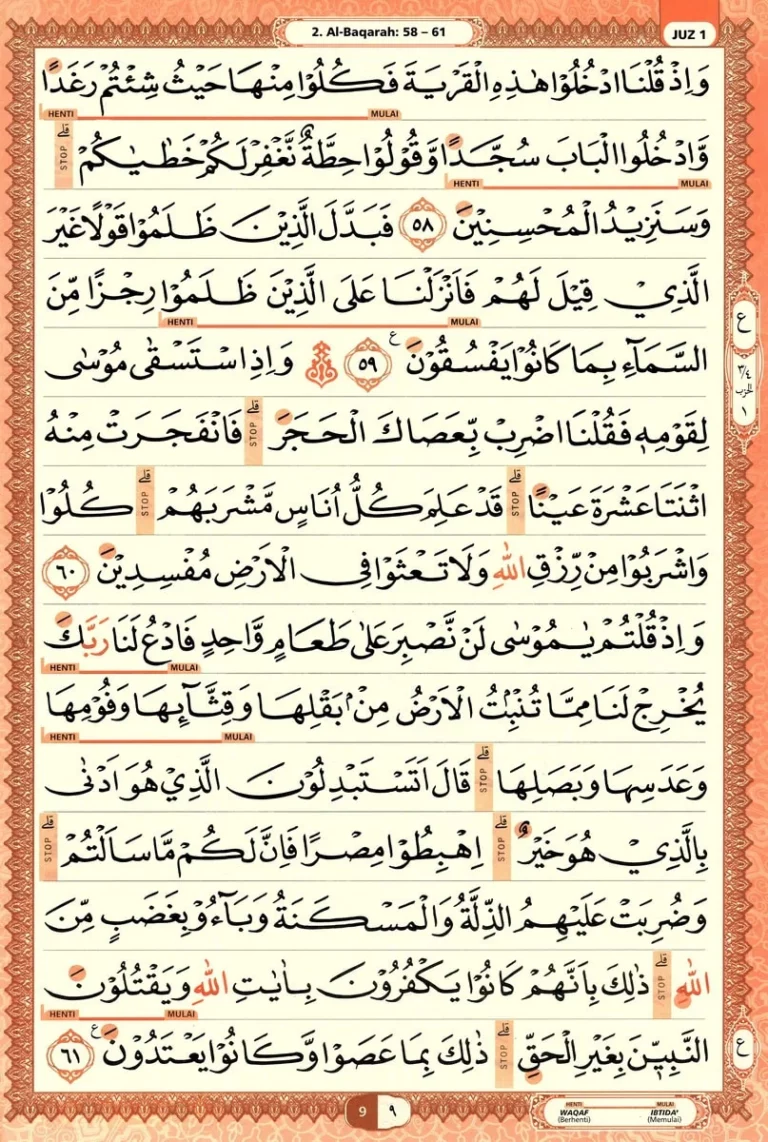 2. Al-Baqarah: 58 – 61
JUZ 1
وَاِذْ قُلْنَا ادْخُلُوْا هٰذِهِ الْقَرْيَةَ فَكُلُوْا مِنْهَا حَيْثُ شِئْتُمْ رَغَدًا
HENTI MULAI
وَّادْخُلُوا الْبَابَ سُجَّدًا وَّقُوْلُوْا حِطَّةٌ نَّغْفِرْ لَكُمْ خَطٰيٰكُمْ ۗ STOP
HENTI MULAI
وَسَنَزِيْدُ الْمُحْسِنِيْنَ ٥٨ فَبَدَّلَ الَّذِيْنَ ظَلَمُوْا قَوْلًا غَيْرَ
الَّذِيْ قِيْلَ لَهُمْ فَاَنْزَلْنَا عَلَى الَّذِيْنَ ظَلَمُوْا رِجْزًا مِّنَ
HENTI MULAI
السَّمَاۤءِ بِمَا كَانُوْا يَفْسُقُوْنَ ࣖ ٥٩ وَاِذِ اسْتَسْقٰى مُوْسٰى
لِقَوْمِهٖ فَقُلْنَا اضْرِبْ بِّعَصَاكَ الْحَجَرَ ۗ STOP فَانْفَجَرَتْ مِنْهُ
اثْنَتَا عَشْرَةَ عَيْنًا ۗ STOP قَدْ عَلِمَ كُلُّ اُنَاسٍ مَّشْرَبَهُمْ ۗ STOP كُلُوْا
وَاشْرَبُوْا مِنْ رِّزْقِ اللّٰهِ وَلَا تَعْثَوْا فِى الْاَرْضِ مُفْسِدِيْنَ ٦٠
وَاِذْ قُلْتُمْ يٰمُوْسٰى لَنْ نَّصْبِرَ عَلٰى طَعَامٍ وَّاحِدٍ فَادْعُ لَنَا رَبَّكَ
HENTI MULAI
يُخْرِجْ لَنَا مِمَّا تُنْۢبِتُ الْاَرْضُ مِنْۢ بَقْلِهَا وَقِثَّاۤىِٕهَا وَفُوْمِهَا
HENTI MULAI
وَعَدَسِهَا وَبَصَلِهَا ۗ STOP قَالَ اَتَسْتَبْدِلُوْنَ الَّذِيْ هُوَ اَدْنٰى
بِالَّذِيْ هُوَ خَيْرٌ ۗ STOP اِهْبِطُوْا مِصْرًا فَاِنَّ لَكُمْ مَّا سَاَلْتُمْ ۗ STOP
وَضُرِبَتْ عَلَيْهِمُ الذِّلَّةُ وَالْمَسْكَنَةُ وَبَاۤءُوْ بِغَضَبٍ مِّنَ
اللّٰهِ ۗ STOP ذٰلِكَ بِاَنَّهُمْ كَانُوْا يَكْفُرُوْنَ بِاٰيٰتِ اللّٰهِ وَيَقْتُلُوْنَ
HENTI MULAI
النَّبِيّٖنَ بِغَيْرِ الْحَقِّ ۗ STOP ذٰلِكَ بِمَا عَصَوْا وَّكَانُوْا يَعْتَدُوْنَ ࣖ ٦١
ع
٣/٤
الحزب
١
ع
9 ٩
HENTI MULAI
WAQAF IBTIDA'
(Berhenti) (Memulai)